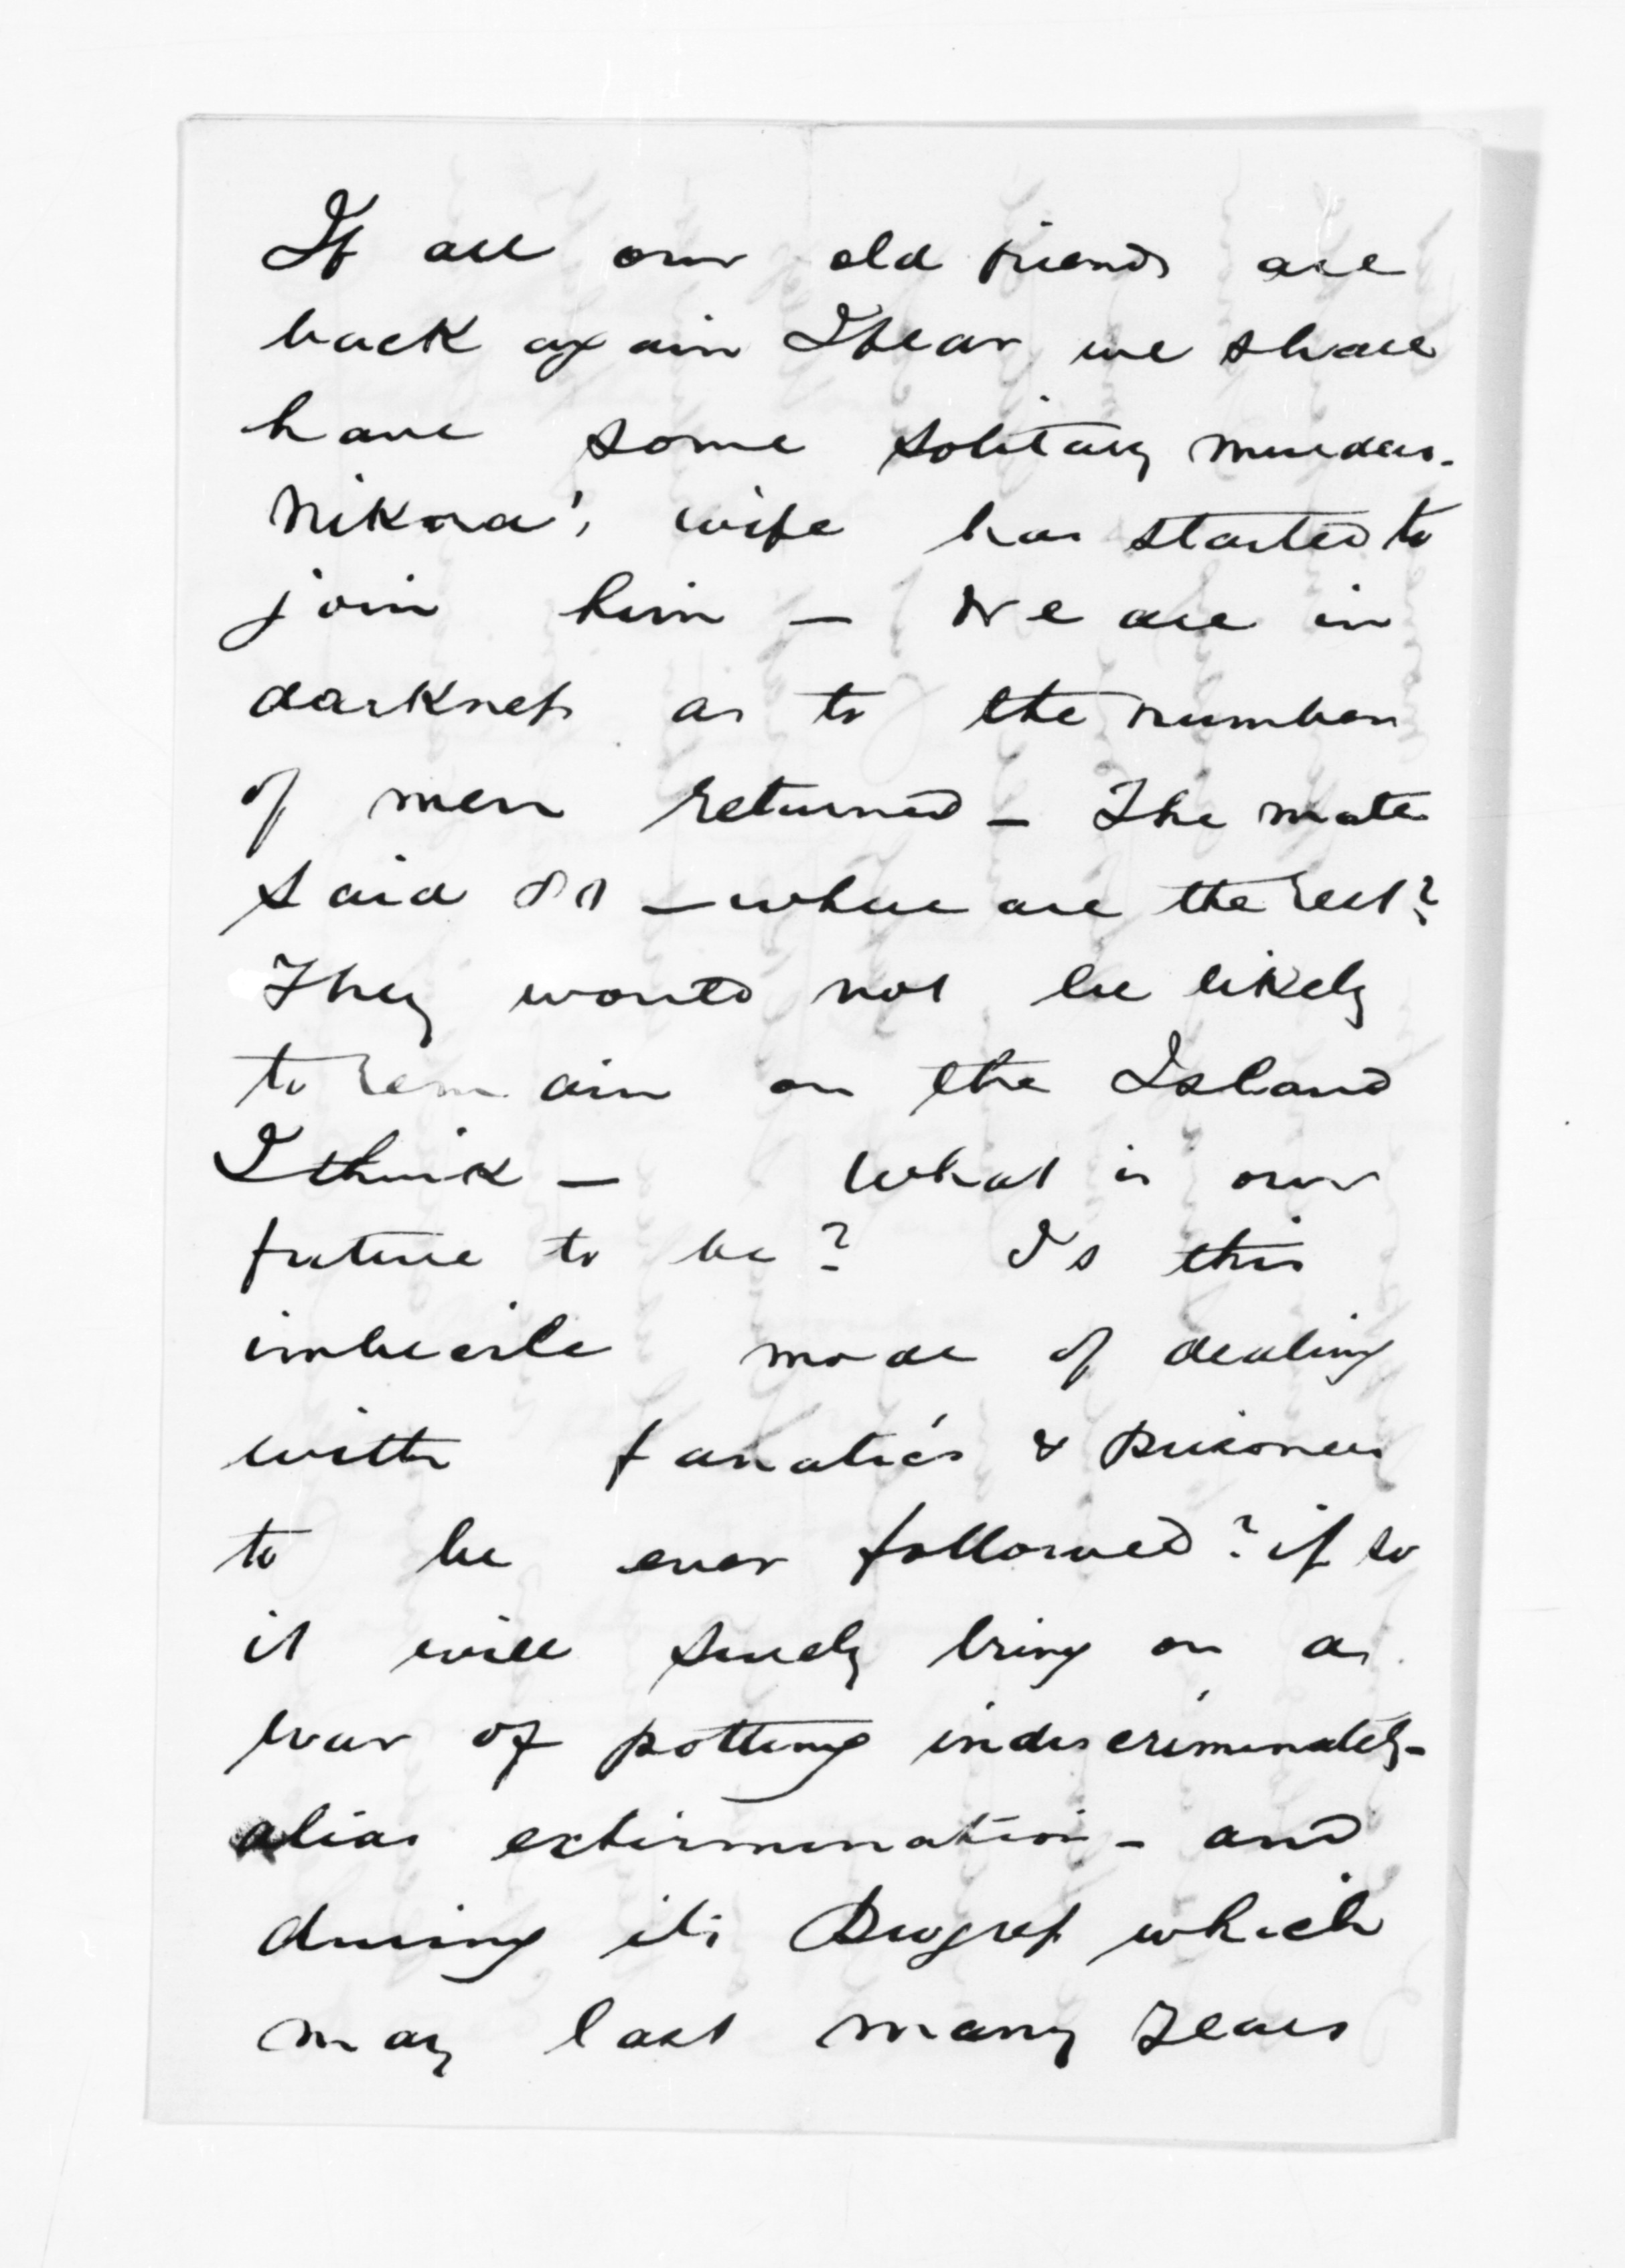 If all our old friends are
back again I fear we shall
have some solitary murders.
Nikora's wife has started to
join him - We are in
darkness as to the number
of men returned - The mate
said - where are the rest?
They would not be likely
to remain on the Island
I think - What is our
future to be? Is this
imbecile mode of dealing
with fanatics & prisoners
to be ever followed? if so
it will surely bring on a
war of potting indiscriminately -
alias extermination - and
during its progress which
may last many years